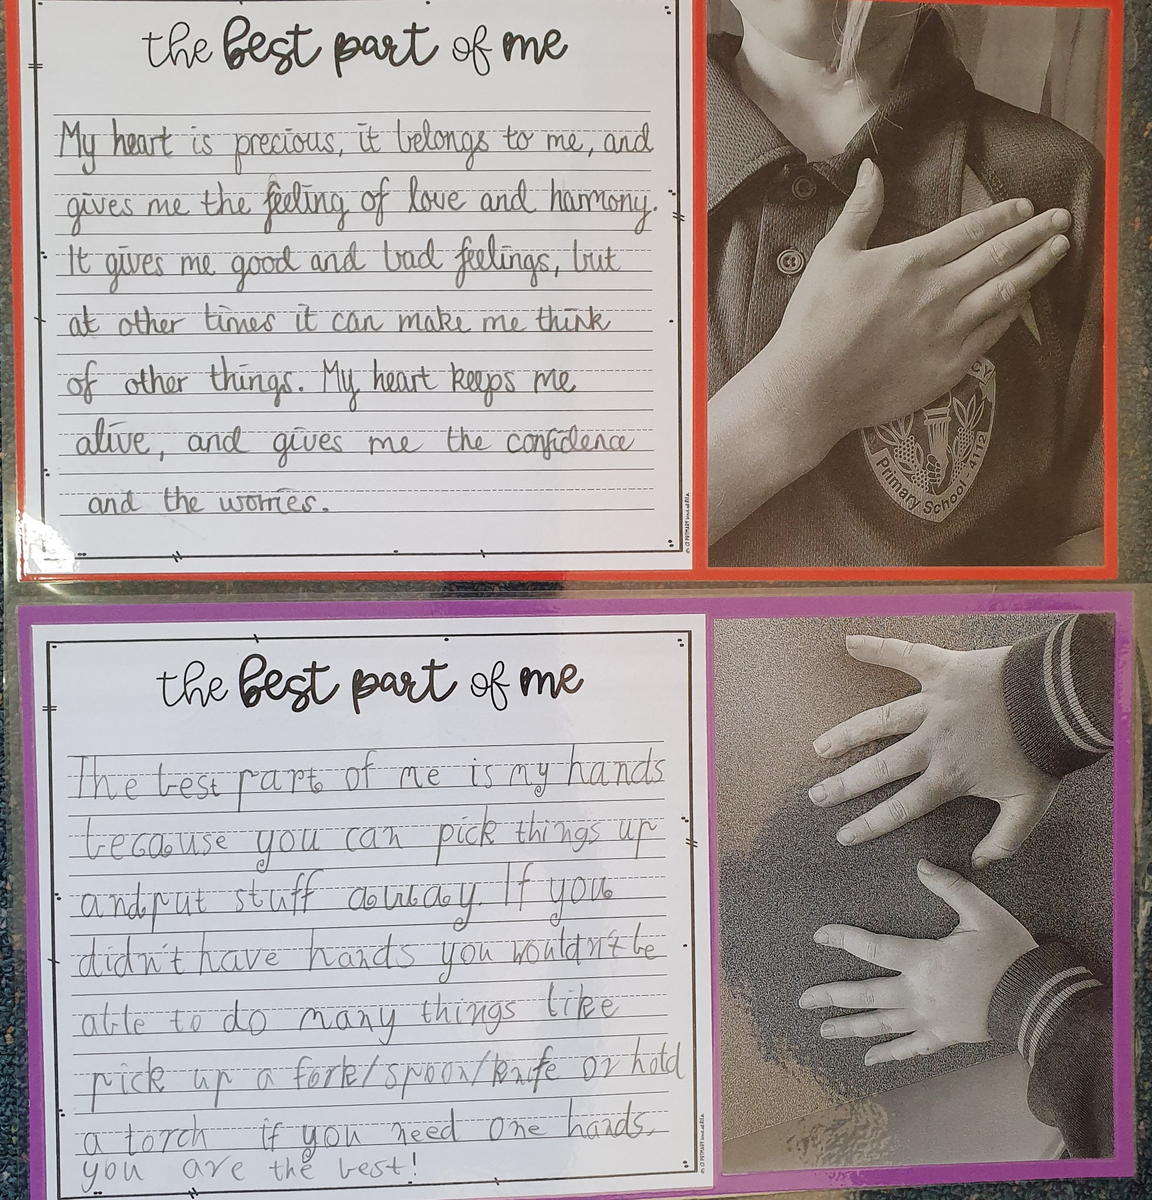 the best part of me
My heart is precious, it belongs to me, and
gives me the feeling of love and harmony.
It gives me good and bad feelings, but
at other times it can make me think
of other things. My heart keeps me
alive, and gives me the confidence
and the worries.
CY
Primary School - 4112
the best part of me
The best part of me is my hands
because you can pick things up
and put stuff away. If you
didn't have hands you wouldn't be
able to do many things like
pick up a fork/spoon/knife or hold
a torch if you need one hands,
you are the best!